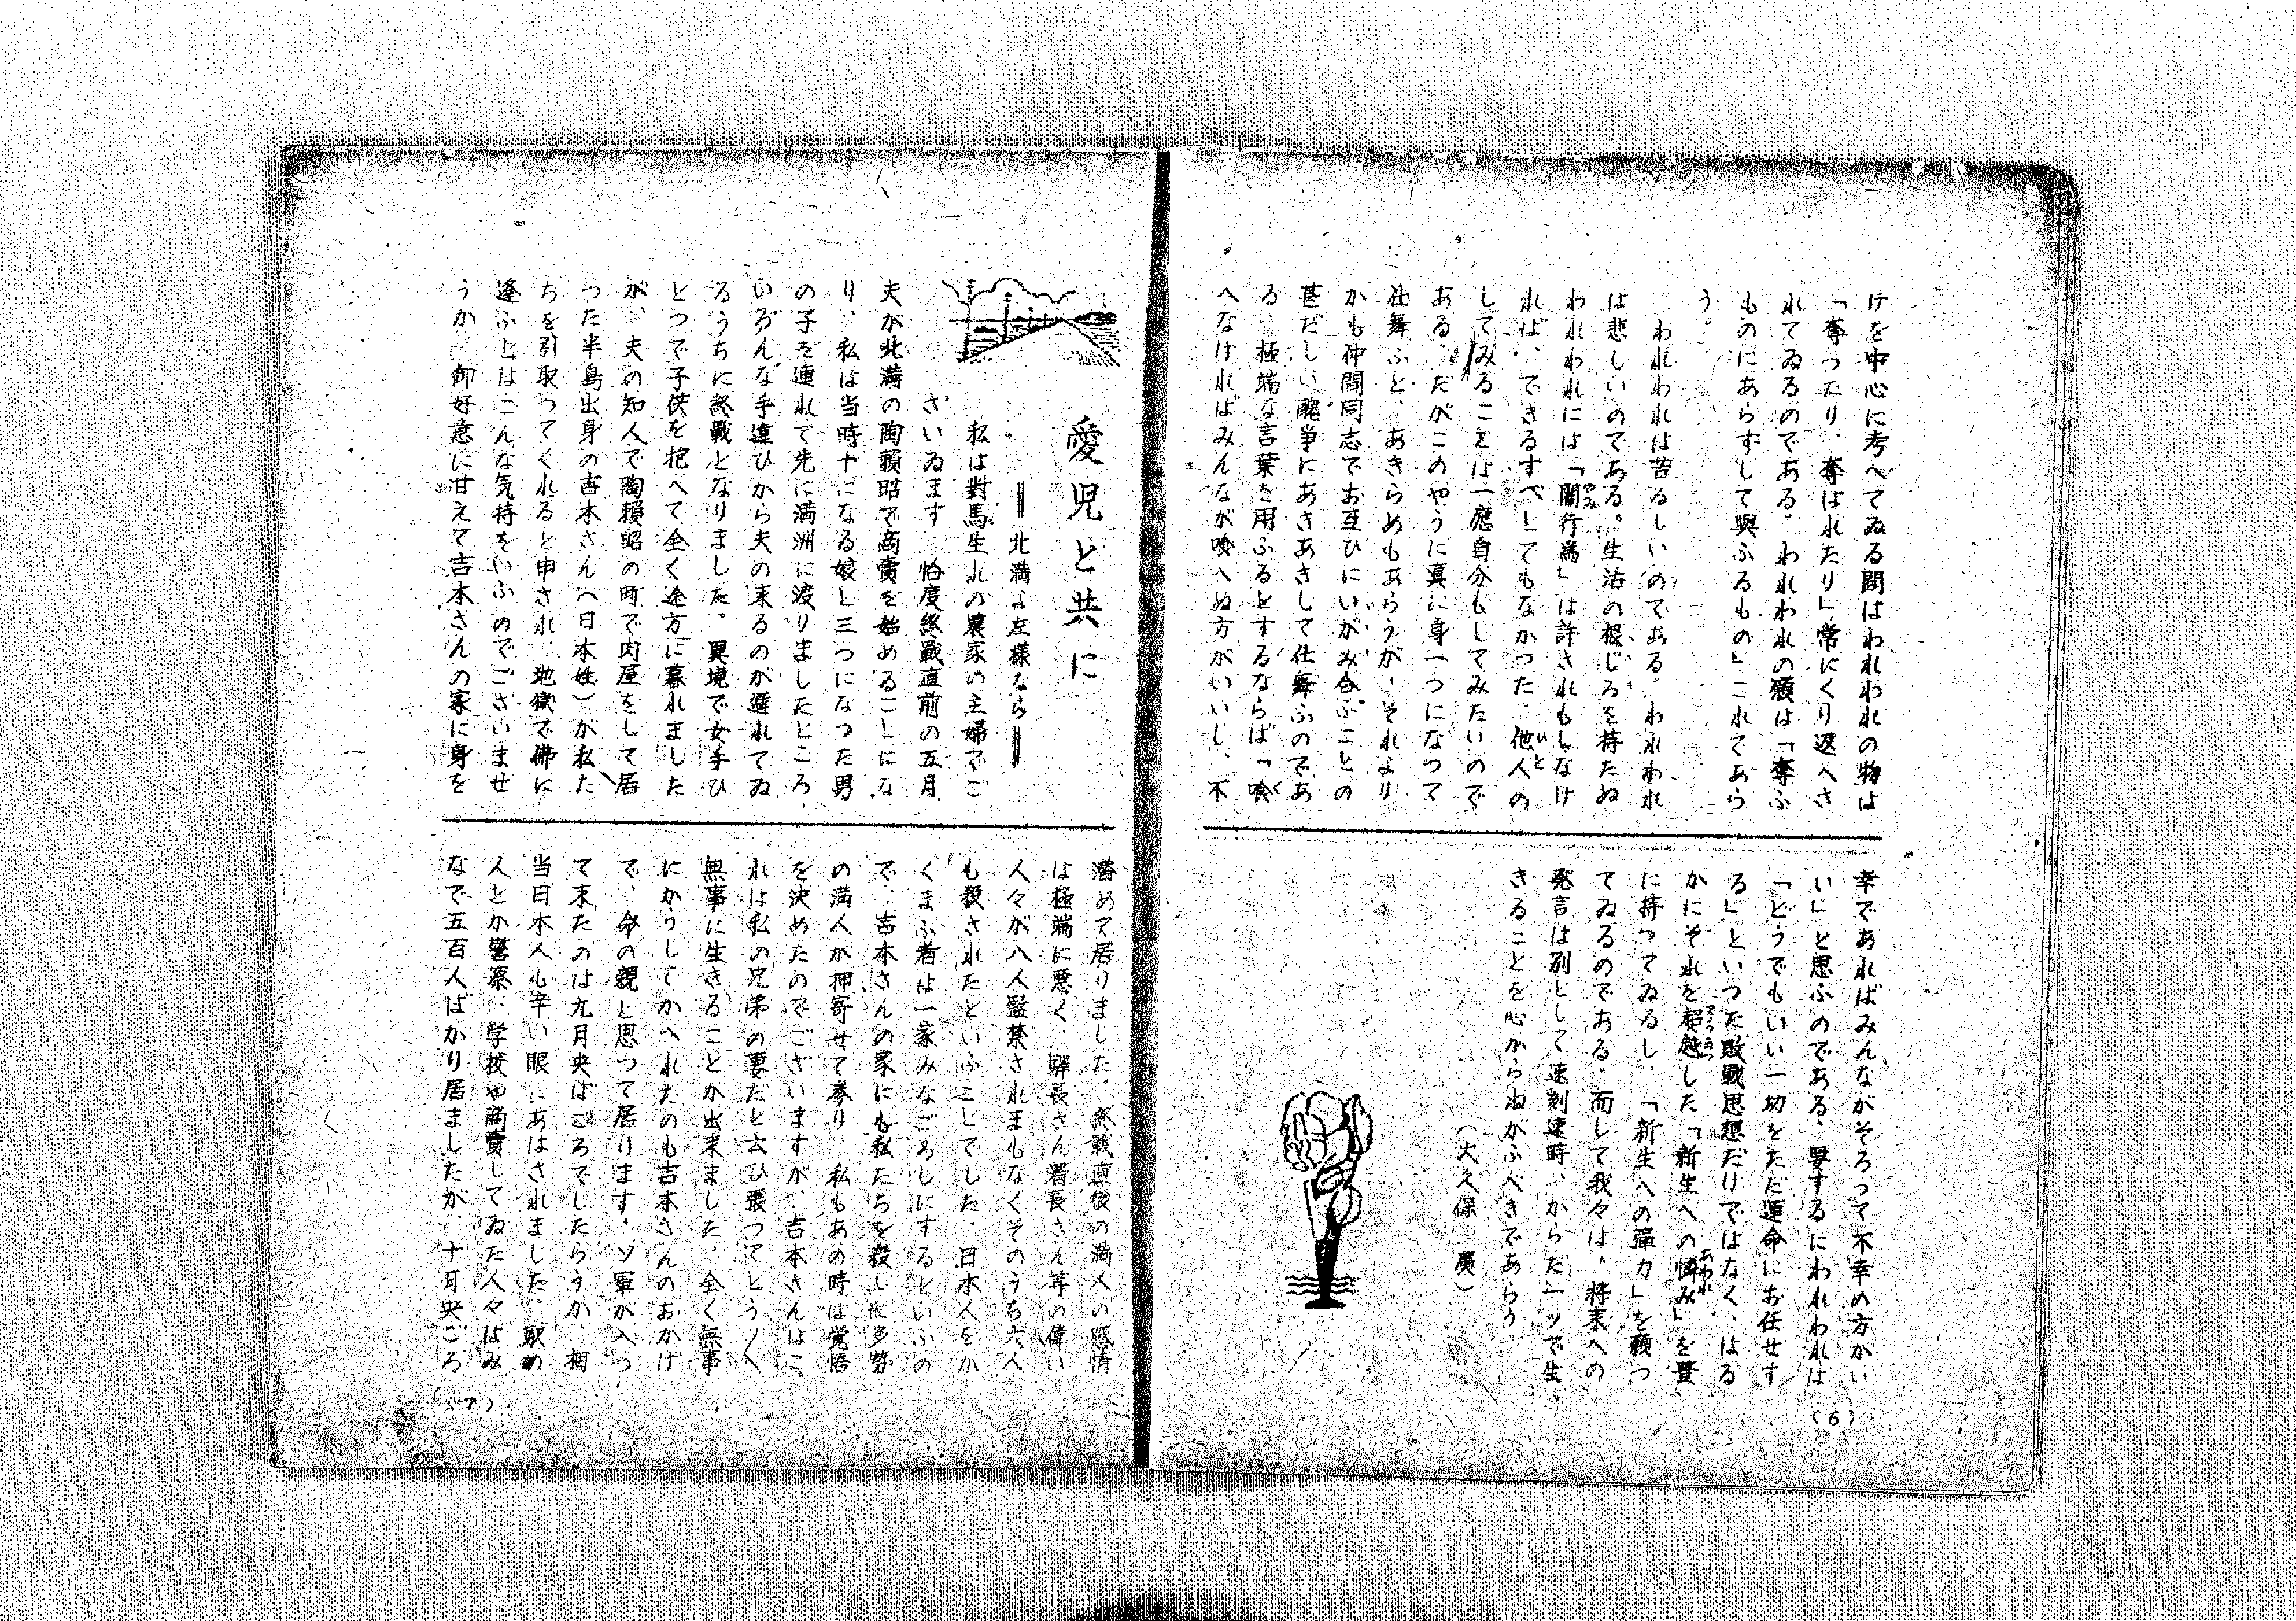 けを中心に考へてゐる間はわれわれの物は
「奪つたり、奪はれたり」常にくり返へさ
れてゐるのである。われわれの願は「奪ふ
ものにあらずして與ふるもの」これであら
う。
われわれは苦るしいのである。われわれ
は悲しいのである。生活の根じろを持たぬ
われわれには「闇行為」は許されもしなけ
やみ
れば、できるすべしてもなかつた、他人の
ひと
してみることは一應自分もしてみたいので
ある。だがこのやうに真に身一つになつて
仕舞ふと、あきらめもあらうが、それより
かも仲間同志でお互ひにいがみ合ふことの
甚だしい醜爭にあきあきして仕舞ふのであ
る、極端な言葉を用ふるとするならば「喰
へなければみんなが喰へぬ方がいいし、不
幸であればみんながそろつて不幸の方がい
い」と思ふのである、要するにわれわれは
「どうでもいい一切をただ運命にお任せす
る」といつた敗戰思想だけではなく、はる
かにそれを超越した「新生への憐み」を豊
あわれ
に持つてゐるし、「新生への彈力」を願つ
てゐるのである。而して我々は、將来への
発言は別として速刻速時、からだ一ツで生
きることを心からねがふべきであらう
（大久保 廣）
(6)
愛児と共に
北満よ左様なら
私は對馬生れの農家の主婦でご
ざいゐます。恰度終戰直前の五月
夫が北満の陶頼昭で商賣を始めることにな
り、私は当時十になる娘と三つになつた男
の子を連れて先に満洲に渡りましたところ、
いろんな手違ひから夫の来るのが遅れてゐ
るうちに終戰となりました。異境で女手ひ
とつで子供を抱へて全く途方に暮れました
が、夫の知人で陶頼昭の町で肉屋をして居
つた半島出身の吉本さん（日本姓）が私た
ちを引取つてくれると申され、地獄で佛に
逢ふとはこんな気持をいふのでございませ
うか、御好意に甘えて吉本さんの家に身を
潜めて居りました。終戰直後の満人の感情
は極端に悪く、驛長さん署長さん等の偉い
人々が八人監禁されまもなくそのうち六人
も殺されたといふことでした、日本人をか
くまふ者は一家みなごろしにするといふの
で、吉本さんの家にも私たちを殺しに多勢
の満人が押寄せて参り、私もあの時は覚悟
を決めたのでございますが、吉本さんはこ
れは私の兄弟の妻だと云ひ張つてとう〱
無事に生きることが出来ました、全く無事
にかうしてかへれたのも吉本さんのおかげ
で、命の親と思つて居ります。ソ軍が入つ
て来たのは九月央ばごろでしたらうか、
当日本人も辛い眼にあはされました、駅の
人とか警察、学校や商賣してゐた人々はみ
なで五百人ばかり居ましたが、十月央ごろ
(7)